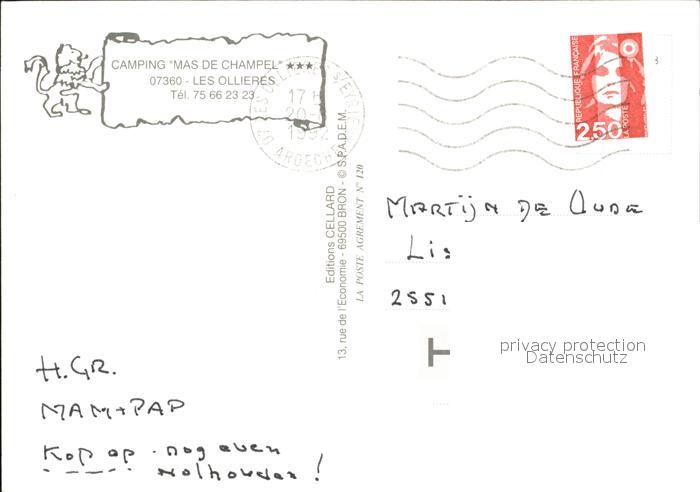 CAMPING "MAS DE CHAMPEL" ★★★
07360 - LES OLLIERES
Tél. 75 66 23 23
17 H
1992
07 ARDECHE
RÉPUBLIQUE FRANÇAISE
LA POSTE
2,50
Editions CELLARD
13, rue de l'Economie - 69500 BRON - © S.P.A.D.E.M.
LA POSTE AGREMENT N° 120
MARTIJN DE OUDE
Lis
2551
T
privacy protection
Datenschutz
H.GR.
MAM+PAP
Kop op - nog even
volhouden!